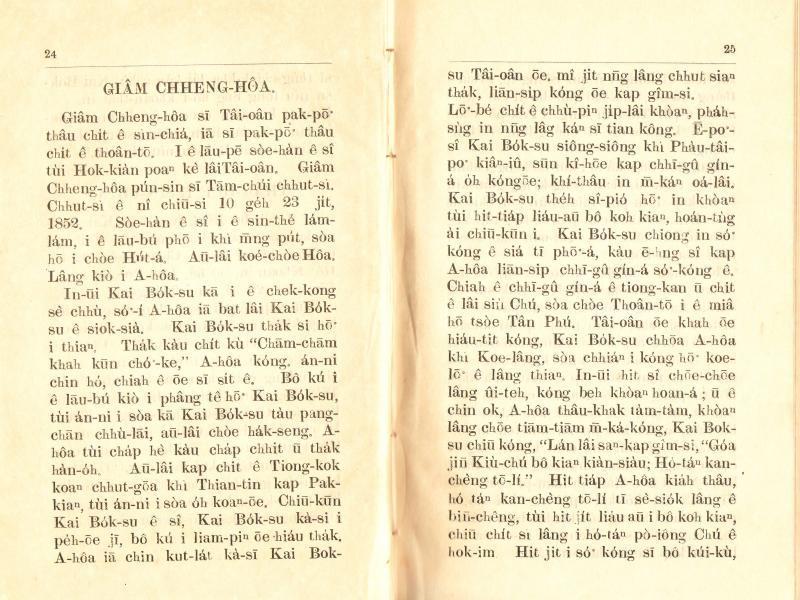 24
GIÂM CHHENG-HÔA.
Giâm Chheng-hôa sī Tâi-oân pak-pō͘
thâu chit ê sìn-chiá, iā sī pak-pō͘ thâu
chit ê thoân-tō. I ê lāu-pē sòe-hàn ê sî
tùi Hok-kiàn poaⁿ kè lâiTâi-oân. Giâm
Chheng-hôa pún-sin sī Tām-chúi chhut-sì.
Chhut-sì ê nî chiū-si 10 géh 23 jit,
1852. Sòe-hàn ê sî i ê sin-thé lám-
lám, i ê lāu-bú phō i khì mn̄g pút, sòa
hō i chòe Hút-á. Aū-lâi koé-chòe Hôa.
Lâng kiò i A-hôa.
In-ūi Kai Bók-su kā i ê chek-kong
sê chhù, só͘-í A-hôa iā bat lâi Kai Bók-
su ê siok-sià. Kai Bók-su thák si hō͘
i thiaⁿ. Thák kàu chít kù "Chām-chām
khah kūn chó͘-ke," A-hôa kóng. án-ni
chin hó, chiah ê ōe sī sit ê. Bô kú i
ê lāu-bú kiò i phâng tê hō͘ Kai Bók-su,
tùi án-ni i sòa kā Kai Bók-su tàu pang-
chān chhù-lāi, aū-lâi chòe hák-seng. A-
hôa tùi cháp hè kàu cháp chhit ū thák
hàn-óh. Aū-lâi kap chit ê Tiong-kok
koaⁿ chhut-gōa khì Thian-tin kap Pak-
kiaⁿ, tùi án-ni i sòa óh koaⁿ-ōe. Chiū-kūn
Kai Bók-su ê sî, Kai Bók-su kà-si i
péh-ōe jī, bô kú i liam-piⁿ ōe hiáu thák.
A-hôa iā chin kut-lát kà-sī Kai Bok-
25
su Tâi-oân ōe. mî jit nn̄g lâng chhut siaⁿ
thák, liān-sip kóng ōe kap gîm-si.
Lō͘-bé chít ê chhù-piⁿ jip-lâi khòaⁿ, pháh-
sǹg in nn̄g lâg káⁿ sī tian kông. Ē-po͘-
sî Kai Bók-su siông-siông khì Phàu-tâi-
po͘ kiân-iû, sūn kî-hōe kap chhī-gû gín-
á óh kóngōe; khí-thâu in m̄-káⁿ oá-lâi.
Kai Bók-su théh sî-pió hō͘ in khòaⁿ
tùi hit-tiáp liáu-aū bô koh kiaⁿ, hoán-tǹg
ài chiū-kūn i. Kai Bók-su chiong in só͘
kóng ê siá tī phō͘-á, kàu ē-hng sî kap
A-hôa liān-sip chhī-gû gín-á só͘-kóng ê.
Chiah ê chhī-gû gín-á ê tiong-kan ū chit
ê lâi sìn Chú, sòa chòe Thoân-tō i ê miâ
hō tsòe Tân Phú. Tâi-oân ōe khah ōe
hiáu-tit kóng, Kai Bók-su chhōa A-hôa
khì Koe-lâng, sòa chhián i kóng hō͘ koe-
lō͘ ê lâng thiaⁿ. In-ūi hit sî chōe-chōe
lâng ûi-teh, kóng beh khòaⁿ hoan-á; ū ê
chin ok, A-hôa thâu-khak tàm-tàm, khòaⁿ
lâng chōe tiām-tiām m̄-ká-kóng, Kai Bok-
su chiū kóng, "Lán lâi saⁿ-kap gîm-si," "Góa
jīn Kiù-chú bô kiaⁿ kiàn-siàu; Hó-táⁿ kan-
chèng tō-lí." Hit tiáp A-hôa kiáh thâu,
hó táⁿ kan-chèng tō-lí tī sè-siók lâng ê
bīn-chêng, tùi hit jít liáu aū i bô koh kiaⁿ,
chiū chít sì lâng i hó-táⁿ pò-iông Chú ê
hok-im Hit jit i só͘ kóng sī bô kúi-kù,